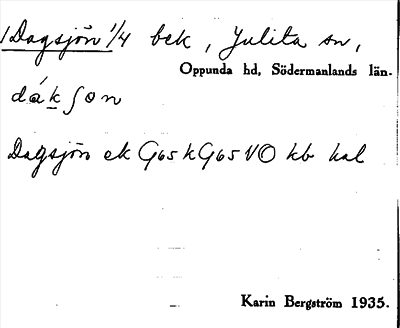 1 Dagsjön 1/4 bek, Julita sn,
Oppunda hd, Södermanlands län.
dákʃon
Dagsjön ek G65 k G65 VO kb kal
Karin Bergström 1935.